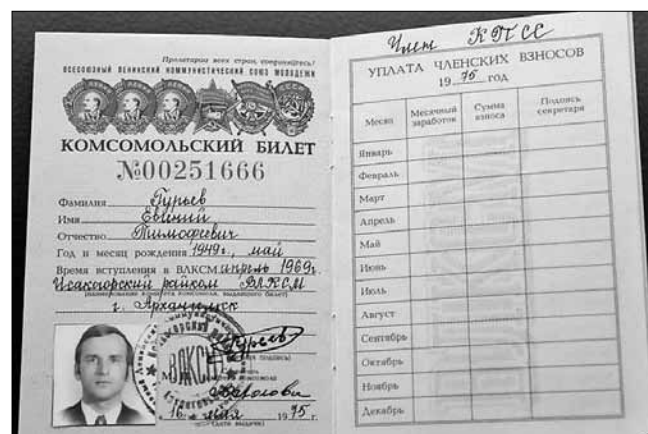 Пролетарии всех стран, соединяйтесь!
ВСЕСОЮЗНЫЙ ЛЕНИНСКИЙ КОММУНИСТИЧЕСКИЙ СОЮЗ МОЛОДЕЖИ
КОМСОМОЛЬСКИЙ БИЛЕТ
№00251666
Фамилия Гурьев
Имя Евгений
Отчество Тимофеевич
Год и месяц рождения 1949г., май
Время вступления в ВЛКСМ апрель 1969г.
Исакогорский райком ВЛКСМ
(наименование комитета комсомола, выдавшего билет)
г. Архангельск
ВЛКСМ
16 мая 1975 г.
(дата выдачи)
Член КПСС
УПЛАТА ЧЛЕНСКИХ ВЗНОСОВ
1975 год
Месяц Месячный заработок Сумма взноса Подпись секретаря
Январь
Февраль
Март
Апрель
Май
Июнь
Июль
Август
Сентябрь
Октябрь
Ноябрь
Декабрь